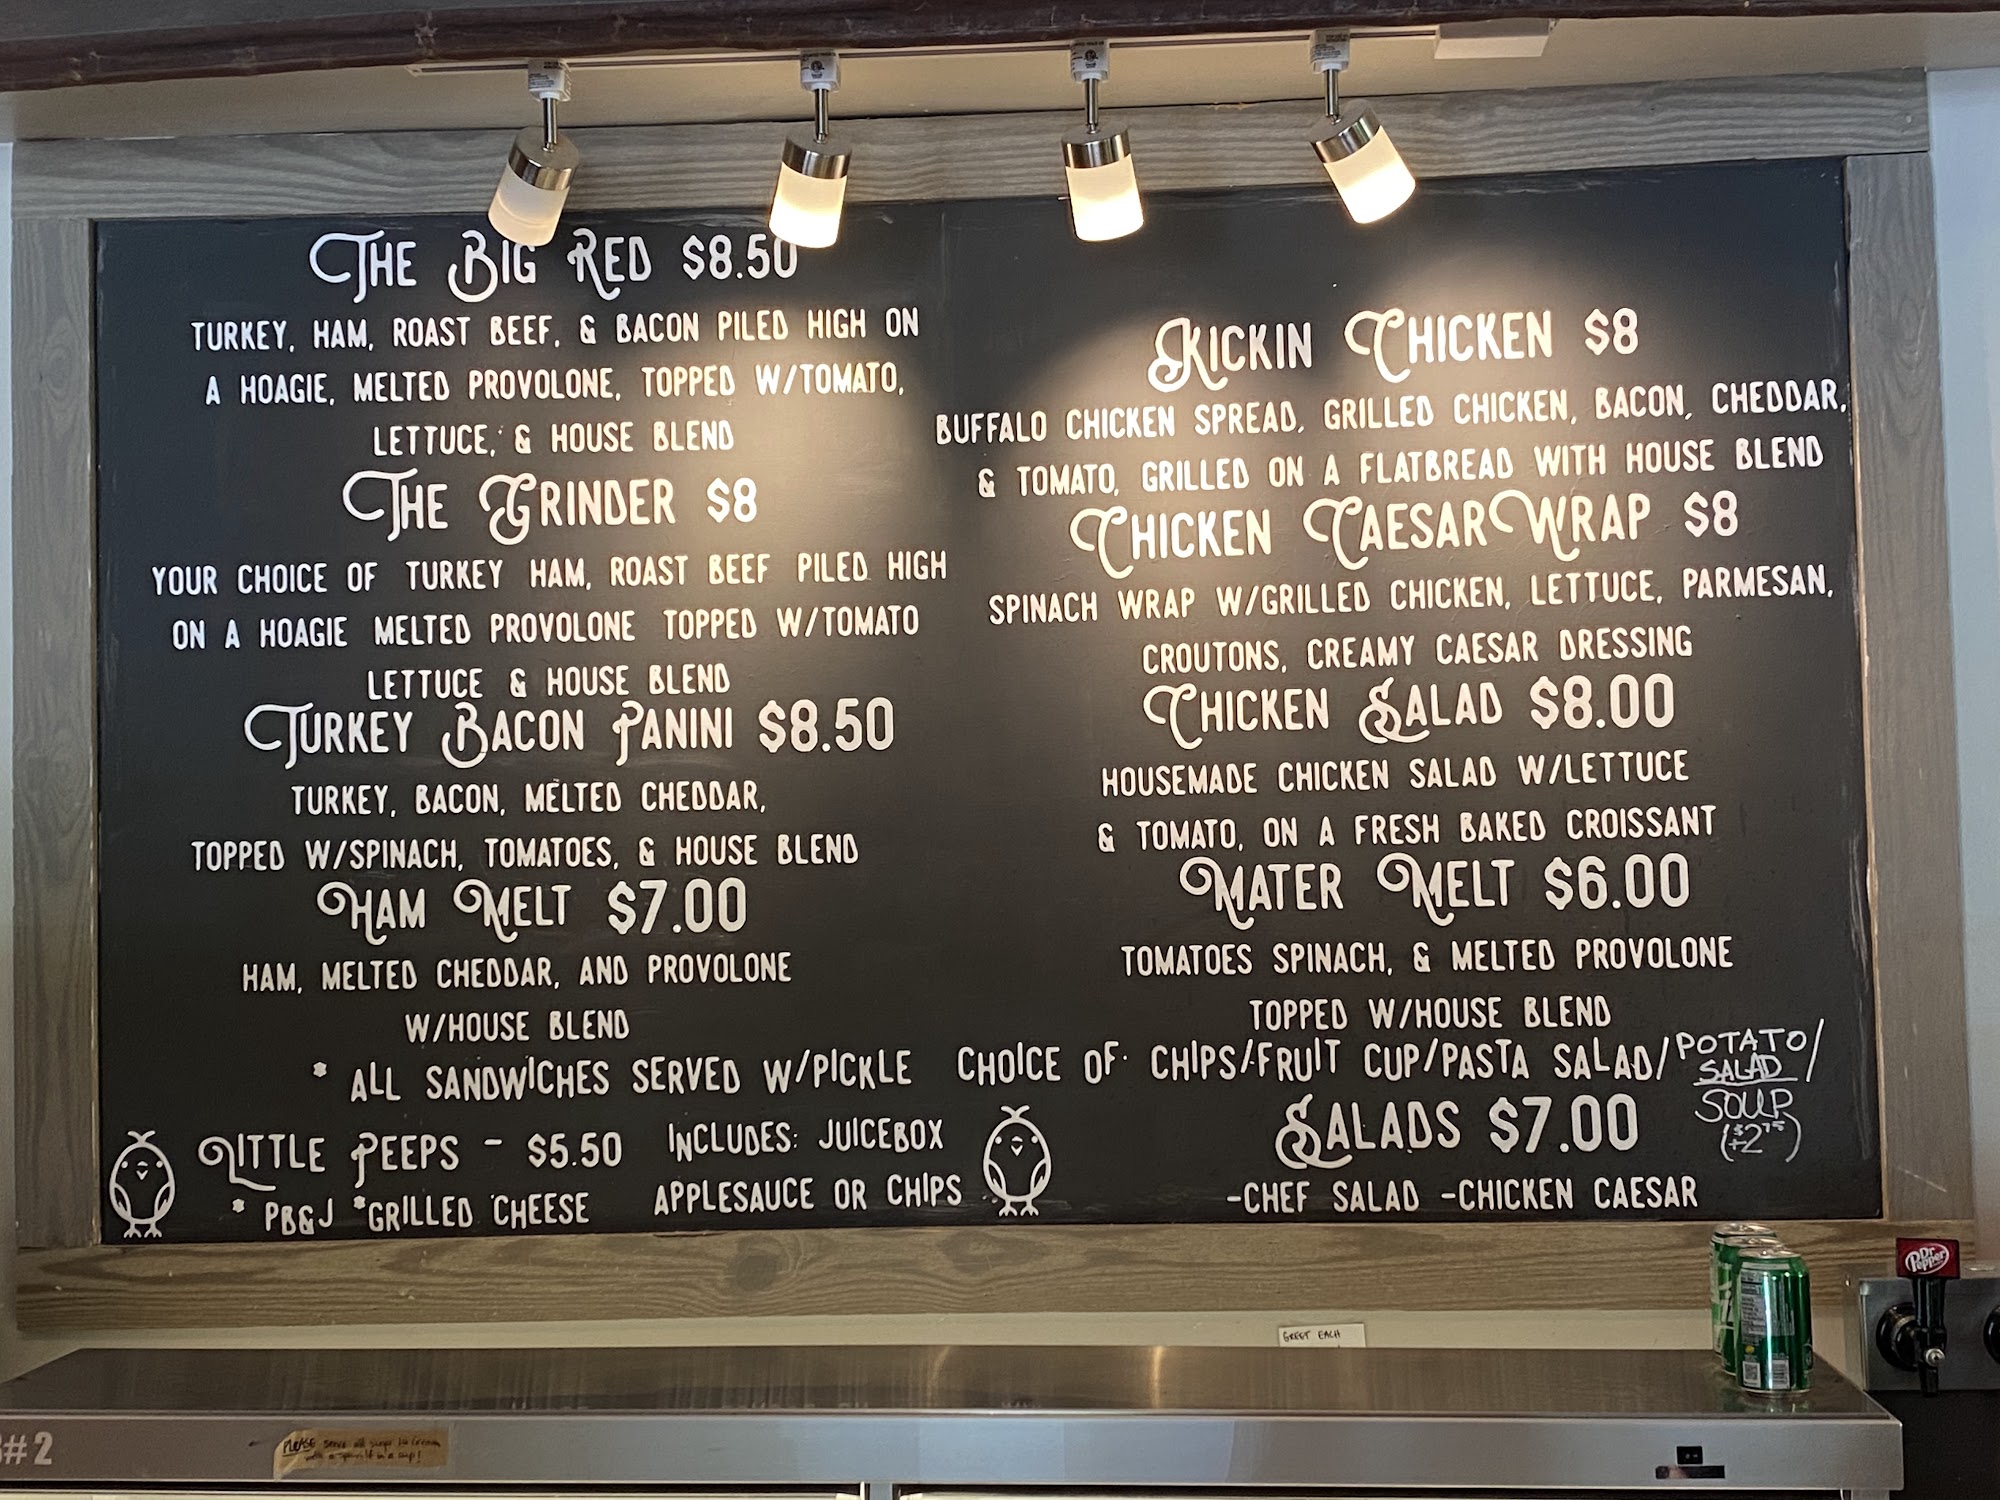 THE BIG RED $8.50
TURKEY, HAM, ROAST BEEF, & BACON PILED HIGH ON
A HOAGIE, MELTED PROVOLONE, TOPPED W/TOMATO,
LETTUCE, & HOUSE BLEND
THE GRINDER $8
YOUR CHOICE OF TURKEY HAM, ROAST BEEF PILED HIGH
ON A HOAGIE MELTED PROVOLONE TOPPED W/TOMATO
LETTUCE & HOUSE BLEND
TURKEY BACON PANINI $8.50
TURKEY, BACON, MELTED CHEDDAR,
TOPPED W/SPINACH, TOMATOES, & HOUSE BLEND
HAM MELT $7.00
HAM, MELTED CHEDDAR, AND PROVOLONE
W/HOUSE BLEND
KICKIN CHICKEN $8
BUFFALO CHICKEN SPREAD, GRILLED CHICKEN, BACON, CHEDDAR,
& TOMATO, GRILLED ON A FLATBREAD WITH HOUSE BLEND
CHICKEN CAESAR WRAP $8
SPINACH WRAP W/GRILLED CHICKEN, LETTUCE, PARMESAN,
CROUTONS, CREAMY CAESAR DRESSING
CHICKEN SALAD $8.00
HOUSEMADE CHICKEN SALAD W/LETTUCE
& TOMATO, ON A FRESH BAKED CROISSANT
MATER MELT $6.00
TOMATOES SPINACH, & MELTED PROVOLONE
TOPPED W/HOUSE BLEND
* ALL SANDWICHES SERVED W/PICKLE CHOICE OF CHIPS/FRUIT CUP/PASTA SALAD/
POTATO/
SALAD/
SOUP
(+$2.75)
LITTLE PEEPS - $5.50
* PB&J *GRILLED CHEESE
INCLUDES: JUICEBOX
APPLESAUCE OR CHIPS
SALADS $7.00
-CHEF SALAD -CHICKEN CAESAR
Dr Pepper
GREET EACH
#2
PLEASE serve all soups